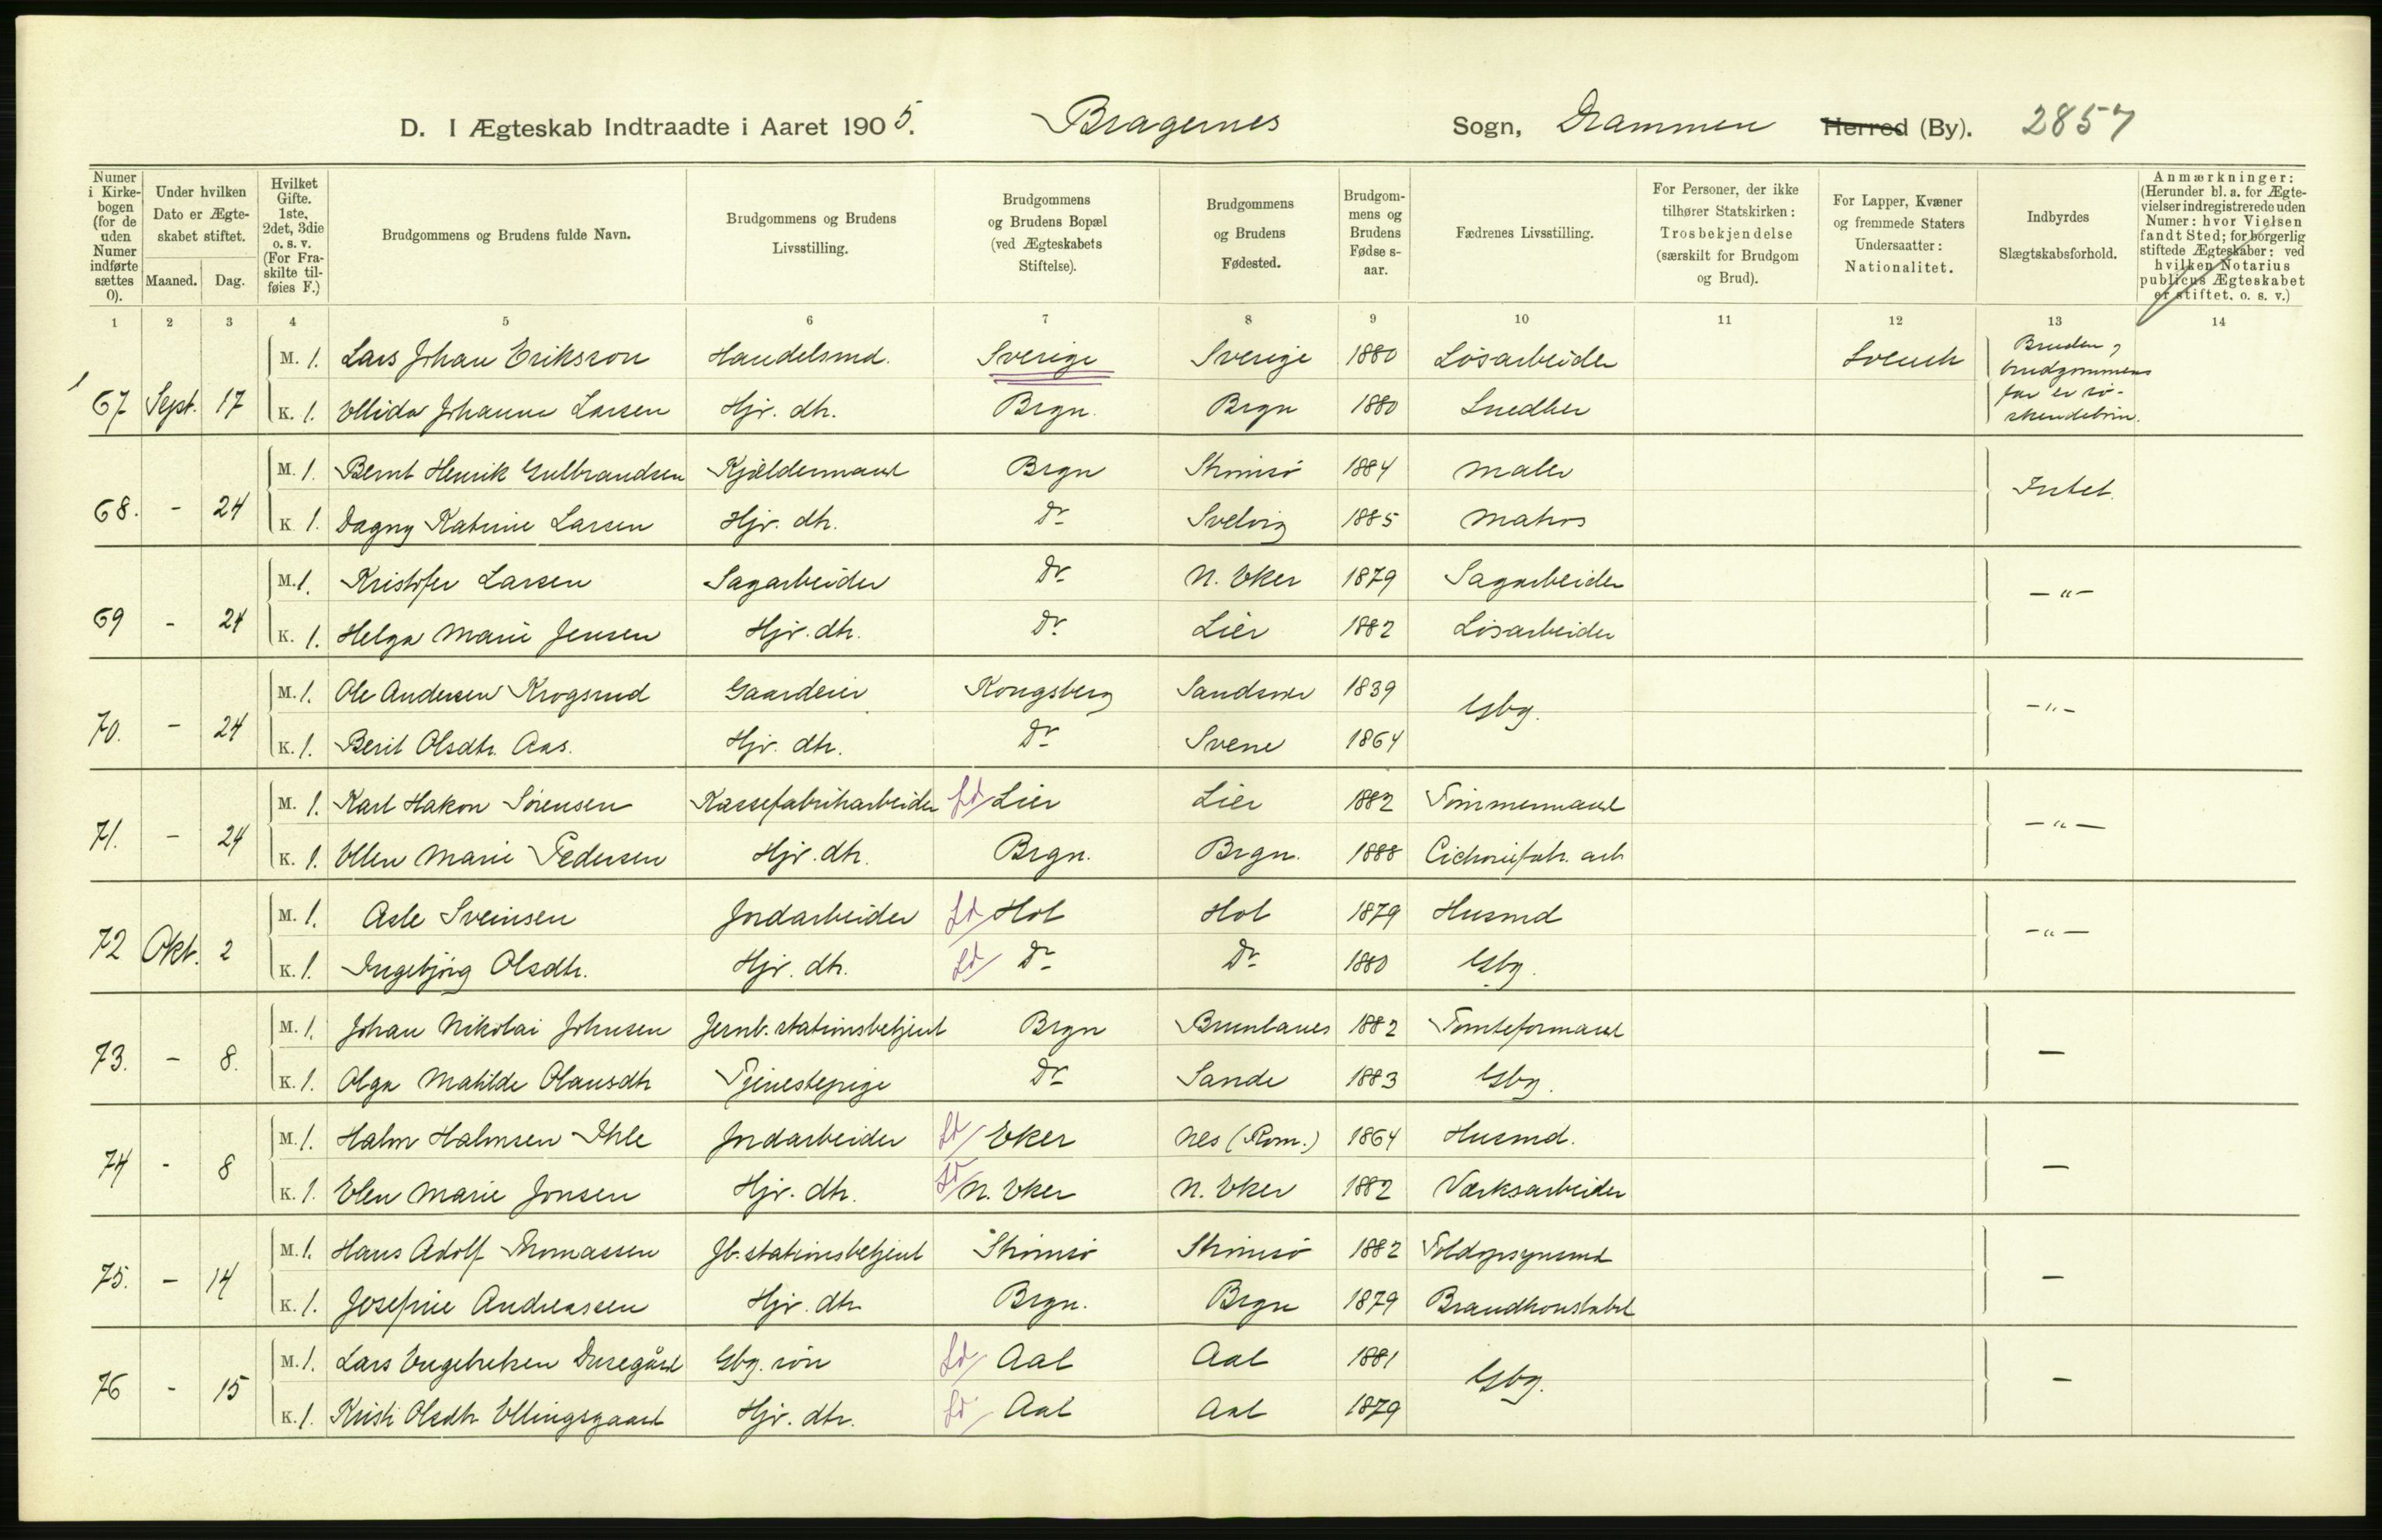 D. I Ægteskab Indtraadte i Aaret 1905. Bragernes Sogn, Drammen Herred (By). 2857
Numer i Kirkebogen (for de uden Numer indførte sættes 0).
Under hvilken Dato er Ægteskabet stiftet.
Maaned. Dag.
Hvilket Gifte. 1ste, 2det, 3die o. s. v. (For Fraskilte tilføies F.)
Brudgommens og Brudens fulde Navn.
Brudgommens og Brudens Livsstilling.
Brudgommens og Brudens Bopæl (ved Ægteskabets Stiftelse).
Brudgommens og Brudens Fødested.
Brudgommens og Brudens Fødselsaar.
Fædrenes Livsstilling.
For Personer, der ikke tilhører Statskirken: Trosbekjendelse (særskilt for Brudgom og Brud).
For Lapper, Kvæner og fremmede Staters Undersaatter: Nationalitet.
Indbyrdes Slægtskabsforhold.
Anmærkninger: (Herunder bl. a. for Ægtevielser indregistrerede uden Numer: hvor Vielsen fandt Sted; for borgerlig stiftede Ægteskaber: ved hvilken Notarius publicus Ægteskabet er stiftet. o. s. v.)
1 2 3 4 5 6 7 8 9 10 11 12 13 14
M. 1. Lars Johan Eriksson Handelsmd. Sverige Sverige 1880 Løsarbeider Svensk Bruden og brudgommens far er søskendebørn.
67 Sept. 17 K. 1. Ellida Johanne Larsen Hjr. dtr. Brgn. Brgn 1880 Snedker
M. 1. Bernt Henrik Gulbrandsen Kjældermand Brgn Strømsø 1884 Maler Intet.
68. - 24 K. 1. Dagny Katrine Larsen Hjr. dtr. Do Svelvig 1885 Matros
M. 1. Kristofer Larsen Sagarbeider Do N. Eker 1879 Sagarbeider — " —
69 - 24 K. 1. Helga Marie Jensen Hjr. dtr. Do Lier 1882 Løsarbeider
M. 1. Ole Andersen Krogsrud Gaardeier Kongsberg Sandsvær 1839 Gbg. — " —
70. - 24 K. 1. Berit Olsdtr. Aas. Hjr. dtr. Do Svene 1864
M. 1. Karl Hakon Sørensen Kassefabrikarbeider Ld/ Lier Lier 1882 Tømmermand — " —
71. - 24 K. 1. Ellen Marie Pedersen Hjr. dtr. Brgn. Brgn. 1888 Cichoriefabr. arb
M. 1. Asle Sveinsen Jordarbeider Ld/ Hol Hol 1879 Husmd — " —
72 Okt. 2 K. 1. Ingebjørg Olsdtr. Hjr. dtr. Ld/ Do Do 1880 Gbg.
M. 1. Johan Nikolai Johnsen Jernb. stationsbetjent Brgn Brunlanes 1882 Tomteformand —
73. - 8. K. 1. Olga Matilde Olausdtr Tjenestepige Do Sande 1883 Gbg.
M. 1. Halvor Halvorsen Ihle Jordarbeider Ld/ Eker Nes (Rom.) 1864 Husmd. —
74 - 8 K. 1. Elen Marie Jonsen Hjr. dtr. Ld/ N. Eker N. Eker 1882 Værksarbeider
M. 1. Hans Adolf Thomassen Jb. stationsbetjent Strømsø Strømsø 1882 Toldopsynsmd —
75. - 14 K. 1. Josefine Andreassen Hjr. dtr. Brgn. Brgn 1879 Brandkonstabel
M. 1. Lars Engebretsen Gbg. søn Ld/ Aal Aal 1881 Gbg. —
76 - 15 K. 1. Kristi Olsdtr Ellingsgaard Hjr. dtr. Ld/ Aal Aal 1879